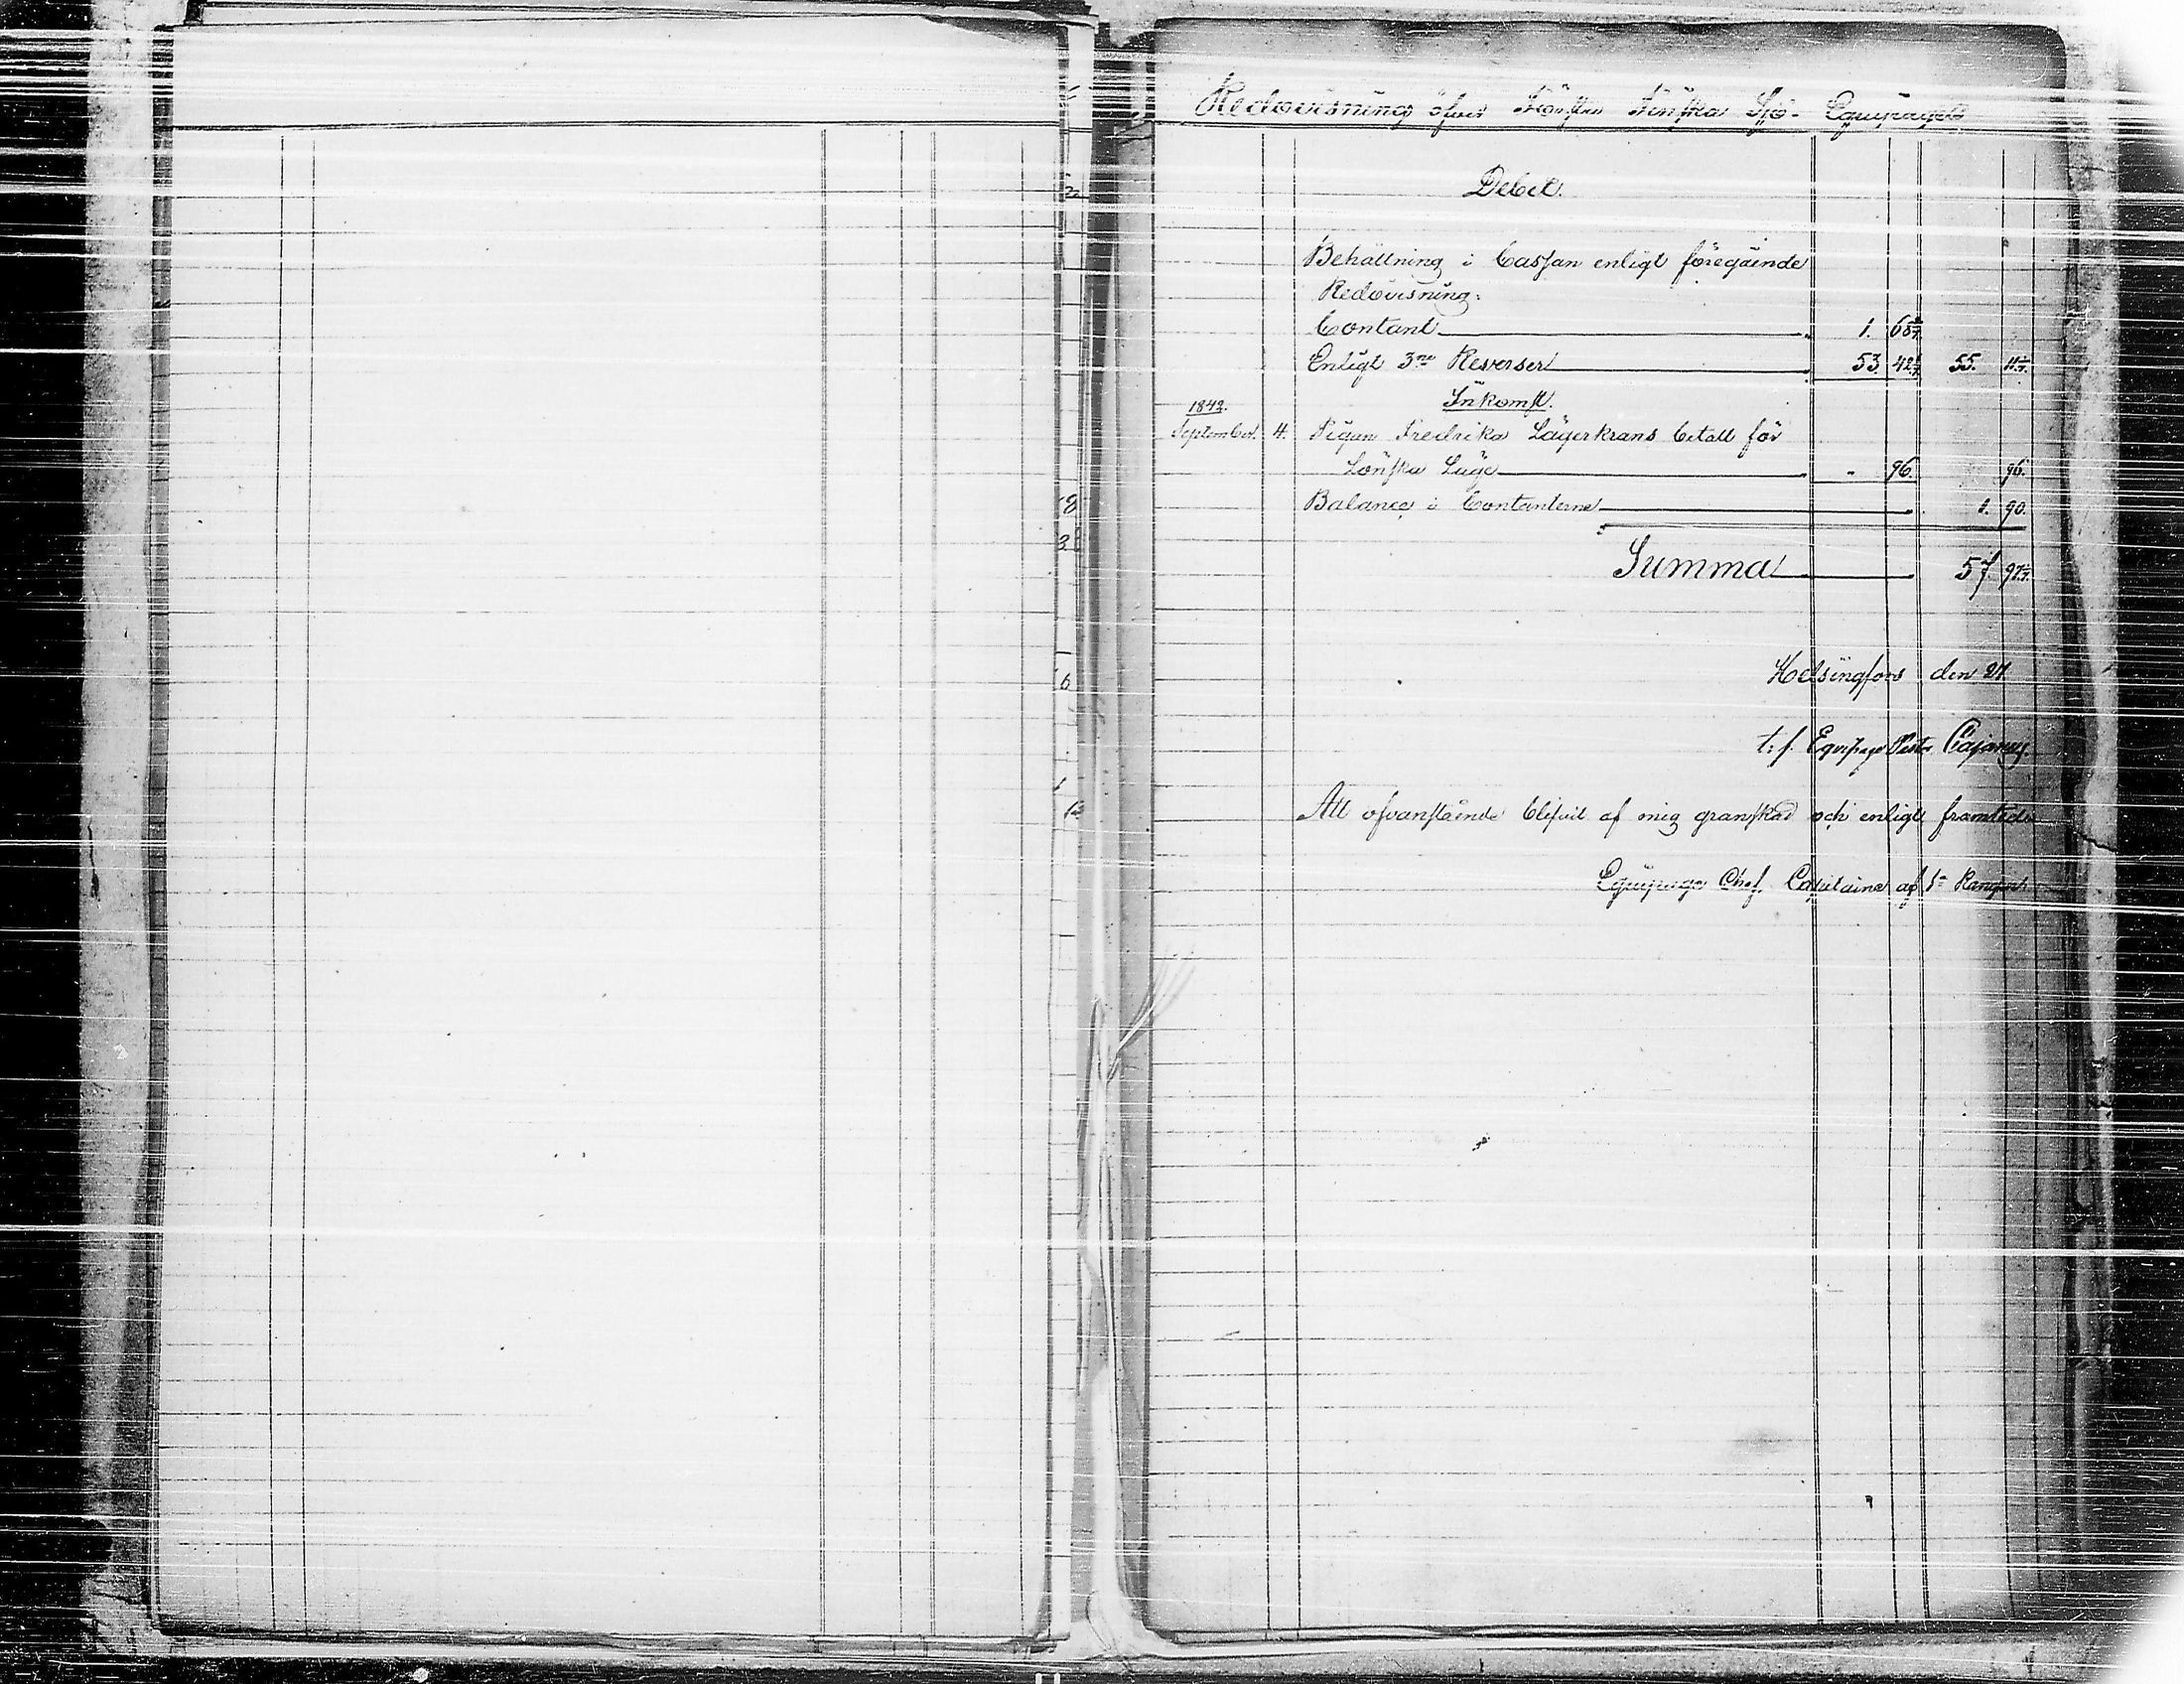 Redovisning öfver Första Finska Sjö-Equipagets
Debet.
Behållning i Cassan enligt föregående
Redovisning:
Contant 1. 68 4/7
Enligt 3ne Reverser 53 42 4/7 55. 11 1/7.
1842. Inkomst.
September. 4. Pigan Fredrika Lägerkrans betalt för
96. 96.
Balance i Contanterne 1. 90.
Summa 57. 97 1/7.
Helsingfors den 27
t.f. Equipage Pastor Cajanus.
Att ofvanstående blifvit af mig granskad och enligt framtedde
Equipage Chef. Capitaine af 1a Rangen